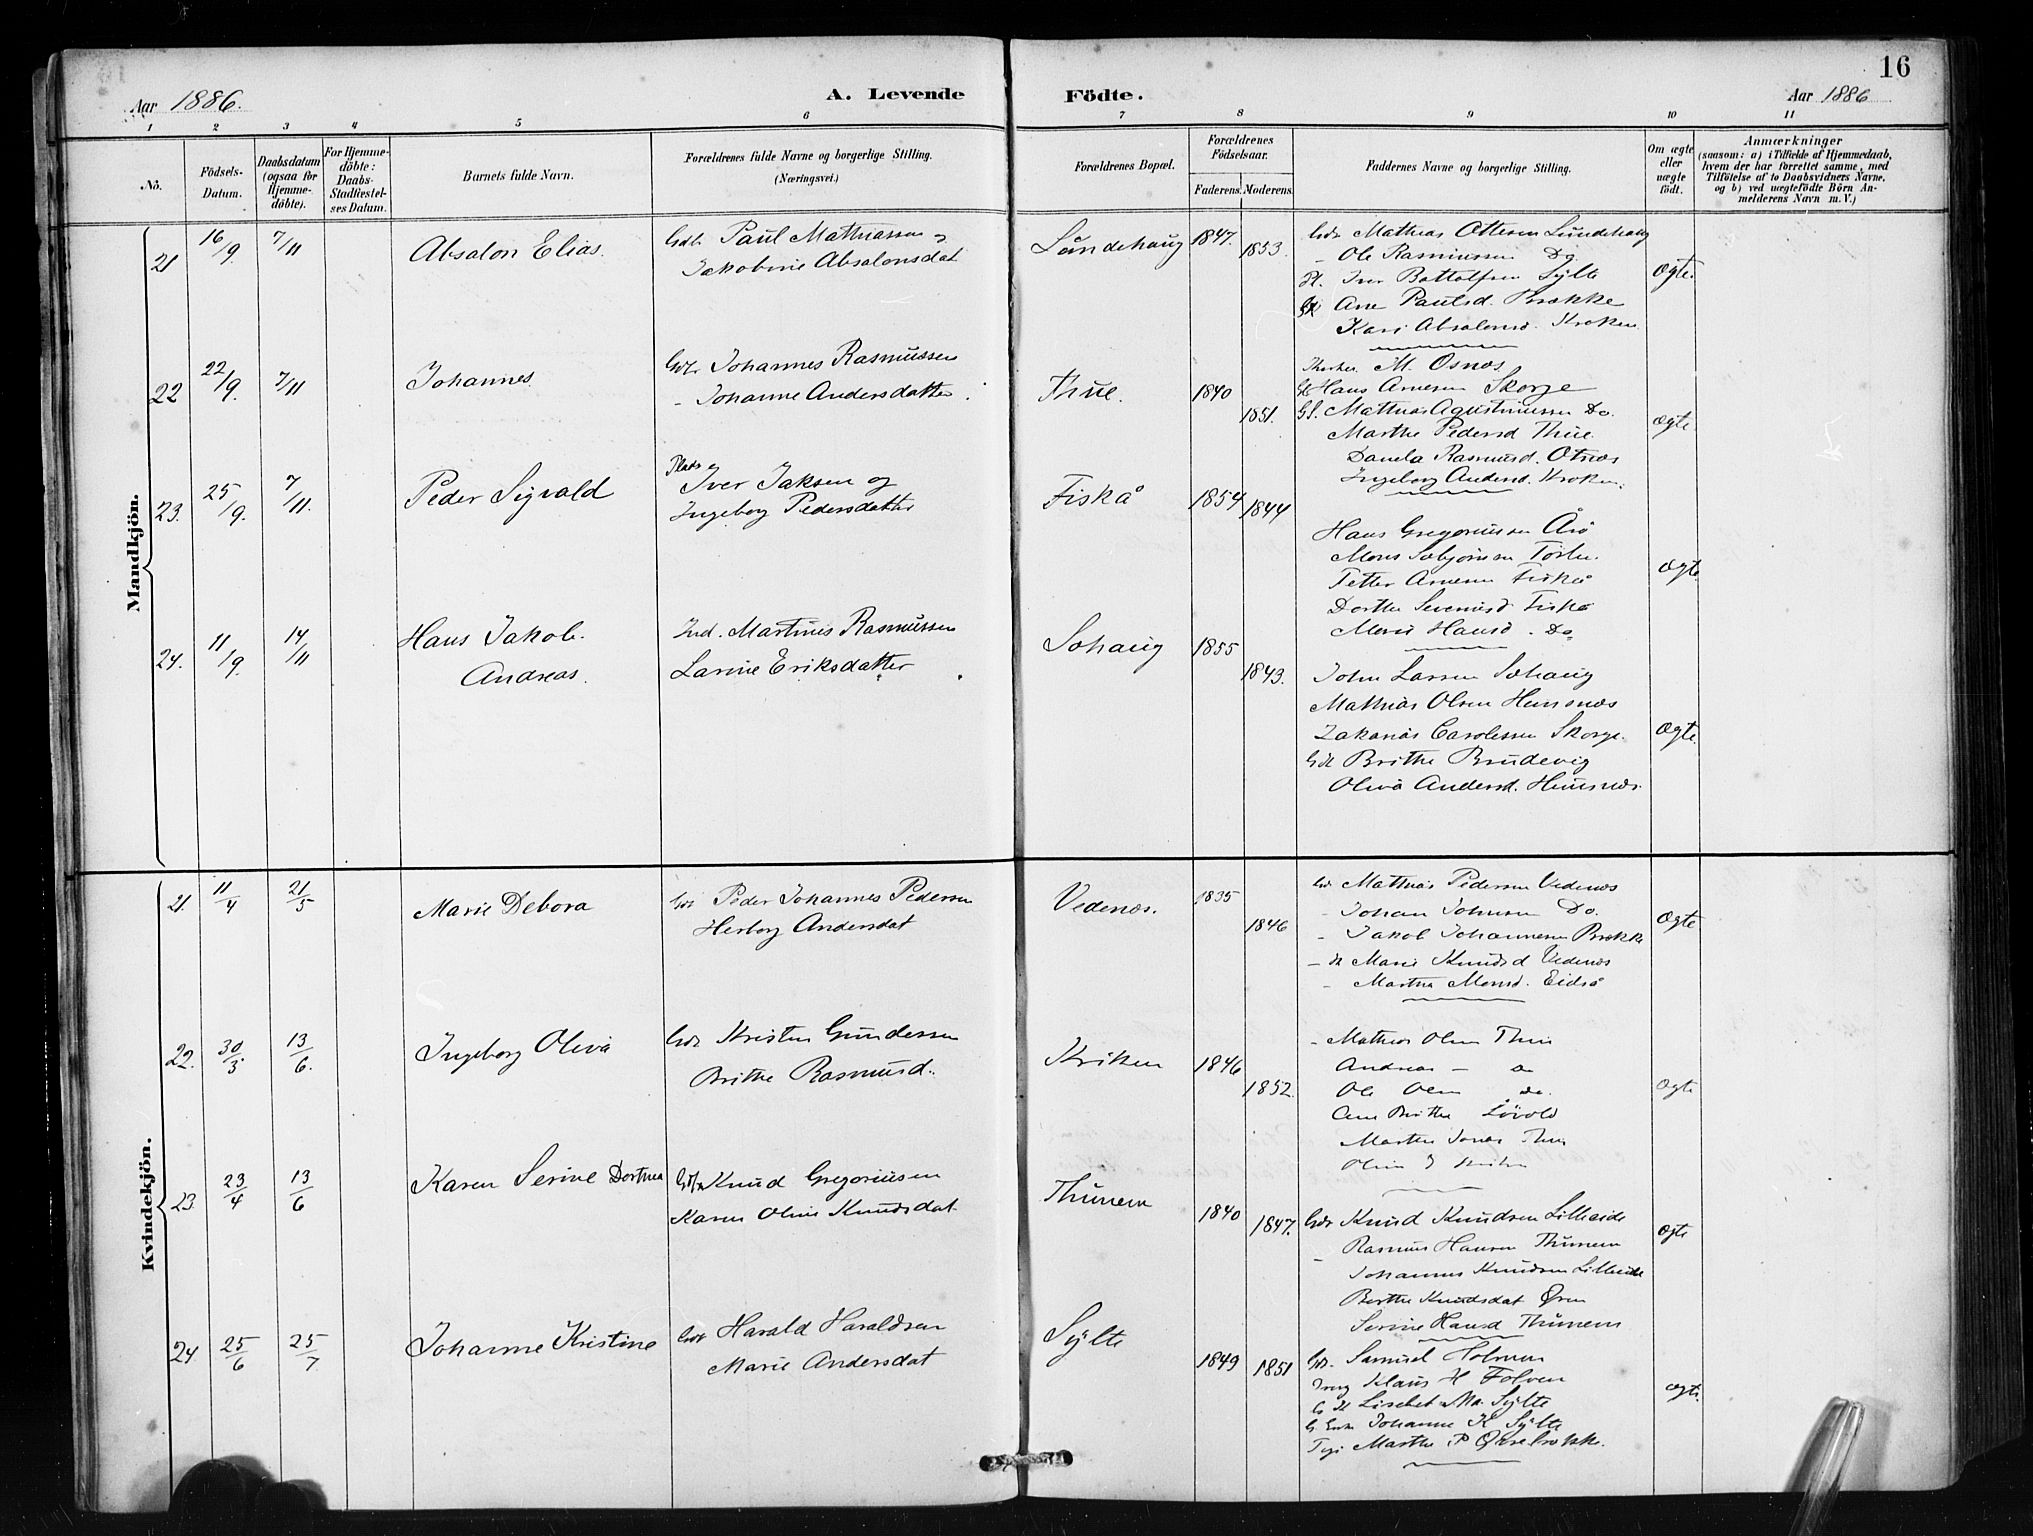 16
Aar 1886.
A. Levende
Födte.
Aar 1886
1 2 3 4 5 6 7 8 9 10 11
No.
Födsels-
Datum.
Daabsdatum
(ogsaa for
Hjemme-
döbte).
For Hjemme-
döbte:
Daabs-
Stadfæstel-
ses Datum.
Barnets fulde Navn.
Forældrenes fulde Navne og borgerlige Stilling.
(Næringsvei.)
Forældrenes Bopæl.
Forældrenes
Födselsaar.
Faderens. Moderens.
Faddernes Navne og borgerlige Stilling.
Om ægte
eller
uægte
födt.
Anmærkninger
(saasom: a) i Tilfælde af Hjemmedaab,
hvem der har forrettet samme, med
Tilföielse af to Daabsvidners Navne,
og b) ved uægtefödte Börn An-
melderens Navn m. V.)
Mandkjön.
21 16/9 7/11 Absalon Elias.
Paul Mathiassen
Jakobine Absalonsdat
Lundehaug 1847. 1853.
Mathias Ottesen Lundehaug
- Ole Rasmussen Do
Iver Bottolfsen Sylte
Ane Paulsd. Brække
Kari Absalonsd. Kroken
Ægte.
22 22/9. 7/11 Johannes
Johannes Rasmussen
- Johanne Andersdatter
Thue. 1840 1851.
M. Osnæs
Hans Arnesen Skorge
Mathias Agustinussen Do.
Marthe Pedersd Thue
Rasmusd. Otnæs
Ingeborg Andersd. Kroken.
Ægte
23. 25/9. 7/11. Peder Sigvald
Plads
Iver Jaksen og
Ingeborg Pedersdatter
Fiskå 1854 1844
Hans Gregoriussen Årö
Petter Arnesen Fiskå
Dorthe Fiskå
Hansd. Do
Ægte
24. 11/9. 14/11 Hans Jakob
Andreas.
Ind. Martines Rasmussen
Larine Eriksdatter
Sohaug 1855 1843.
John Larsen Sohaug
Mathias Olsen
Zakarias Skorge.
Brithe Brudevig
Oliva Andersd.
Ægte.
Kvindekjön.
21. 11/4 21/5 Marie Debora
Peder Johannes Pedersen
Herborg Andersdat
Vedenæs. 1835 1846
Mathias Pedersen Vedenæs
- Johan Johnsen Do.
- Jakob Johannesen Brække
Marie Knudsd Vedenæs
- Martha Monsd. Eidså
Ægte
22. 30/3. 13/6. Ingeborg Oliva
Kristen Gundersen
Brithe Rasmusd.
Kriken 1846 1852.
- Mathias Olsen Thue
Andreas — do
Ole Olsen do.
Ane Brithe Lövold
Marthe Jonas Thue
Ægte
23. 23/4 13/6 Karen Serine Dorthea
Knud Gregoriusen
Karen Oline Knudsdat
Thunem 1840 1847.
Knud Knudsen Lilleeide
Rasmus Hansen Thunem
Johannes Knudsen Lilleeide
Berthe Knudsdat Ören
Serine Hansd Thunem
Ægte
24 25/6 25/7 Johanne Kristine
Harald Haraldsen
Marie Andersdat
Sylte 1849 1851
Samuel Holmen
Klaus H Folven
Lisebet Sylte
Johanne K Sylte
Marthe P
Ægte.